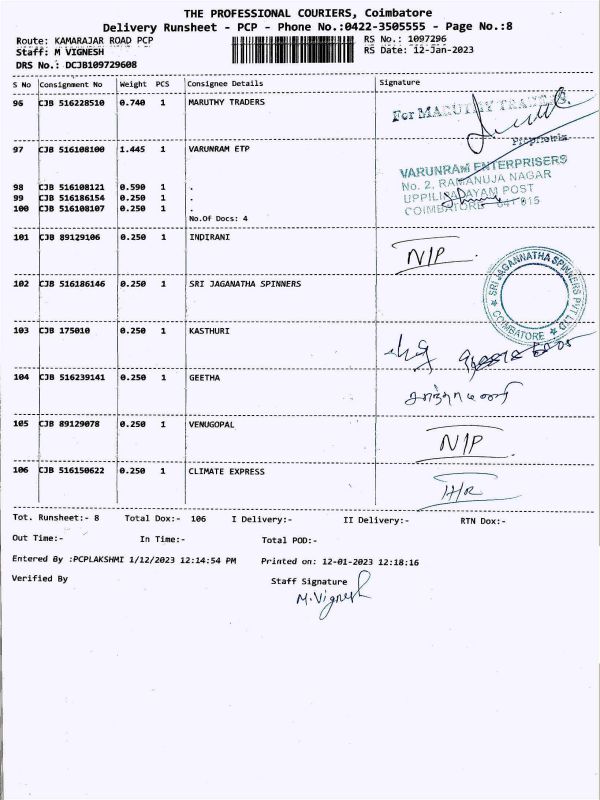 THE PROFESSIONAL COURIERS, Coimbatore
Delivery Runsheet - PCP - Phone No.:0422-3505555 - Page No.:8
Route: KAMARAJAR ROAD PCP RS No.: 1097296
Staff: M VIGNESH RS Date: 12-Jan-2023
DRS No.: DCJB109729608
S No Consignment No Weight PCS Consignee Details Signature
96 CJB 516228510 0.740 1 MARUTHY TRADERS
For MARUTHY TRADERS
Proprietrix
97 CJB 516108100 1.445 1 VARUNRAM ETP
VARUNRAM ENTERPRISERS
No. 2, RAMANUJA NAGAR
98 CJB 516108121 0.590 1 .
UPPILIPALAYAM POST
99 CJB 516186154 0.250 1 .
100 CJB 516108107 0.250 1 .
COIMBATORE - 641 015
No.Of Docs: 4
101 CJB 89129106 0.250 1 INDIRANI
N/P
102 CJB 516186146 0.250 1 SRI JAGANATHA SPINNERS
SRI JAGANNATHA SPINNERS PVT LTD
COIMBATORE
103 CJB 175010 0.250 1 KASTHURI
104 CJB 516239141 0.250 1 GEETHA
105 CJB 89129078 0.250 1 VENUGOPAL
N/P
106 CJB 516150622 0.250 1 CLIMATE EXPRESS
H/R
Tot. Runsheet:- 8 Total Dox:- 106 I Delivery:- II Delivery:- RTN Dox:-
Out Time:- In Time:- Total POD:-
Entered By :PCPLAKSHMI 1/12/2023 12:14:54 PM Printed on: 12-01-2023 12:18:16
Verified By Staff Signature
M.Vignesh